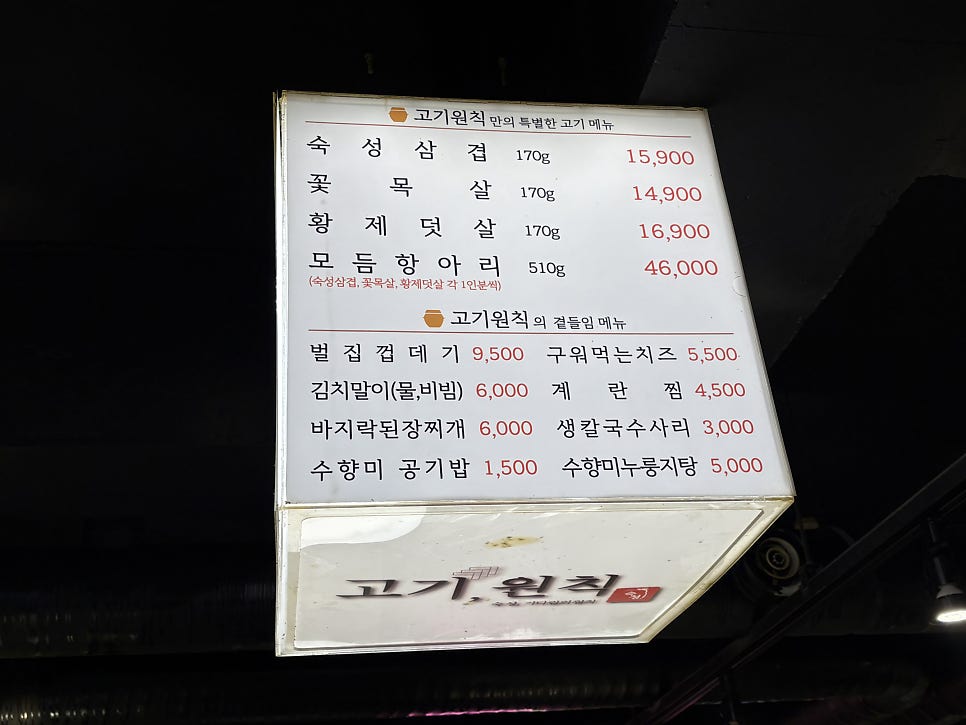 고기원칙 만의 특별한 고기 메뉴
숙성삼겹 170g 15,900
꽃목살 170g 14,900
황제덧살 170g 16,900
모듬항아리 510g 46,000
(숙성삼겹, 꽃목살, 황제덧살 각 1인분씩)
고기원칙의 곁들임 메뉴
벌집껍데기 9,500 구워먹는치즈 5,500
김치말이(물,비빔) 6,000 계란찜 4,500
바지락된장찌개 6,000 생칼국수사리 3,000
수향미 공기밥 1,500 수향미누룽지탕 5,000
고기, 원칙